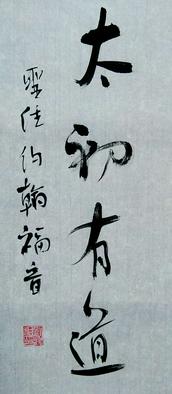 太初有道
聖佳約翰福音